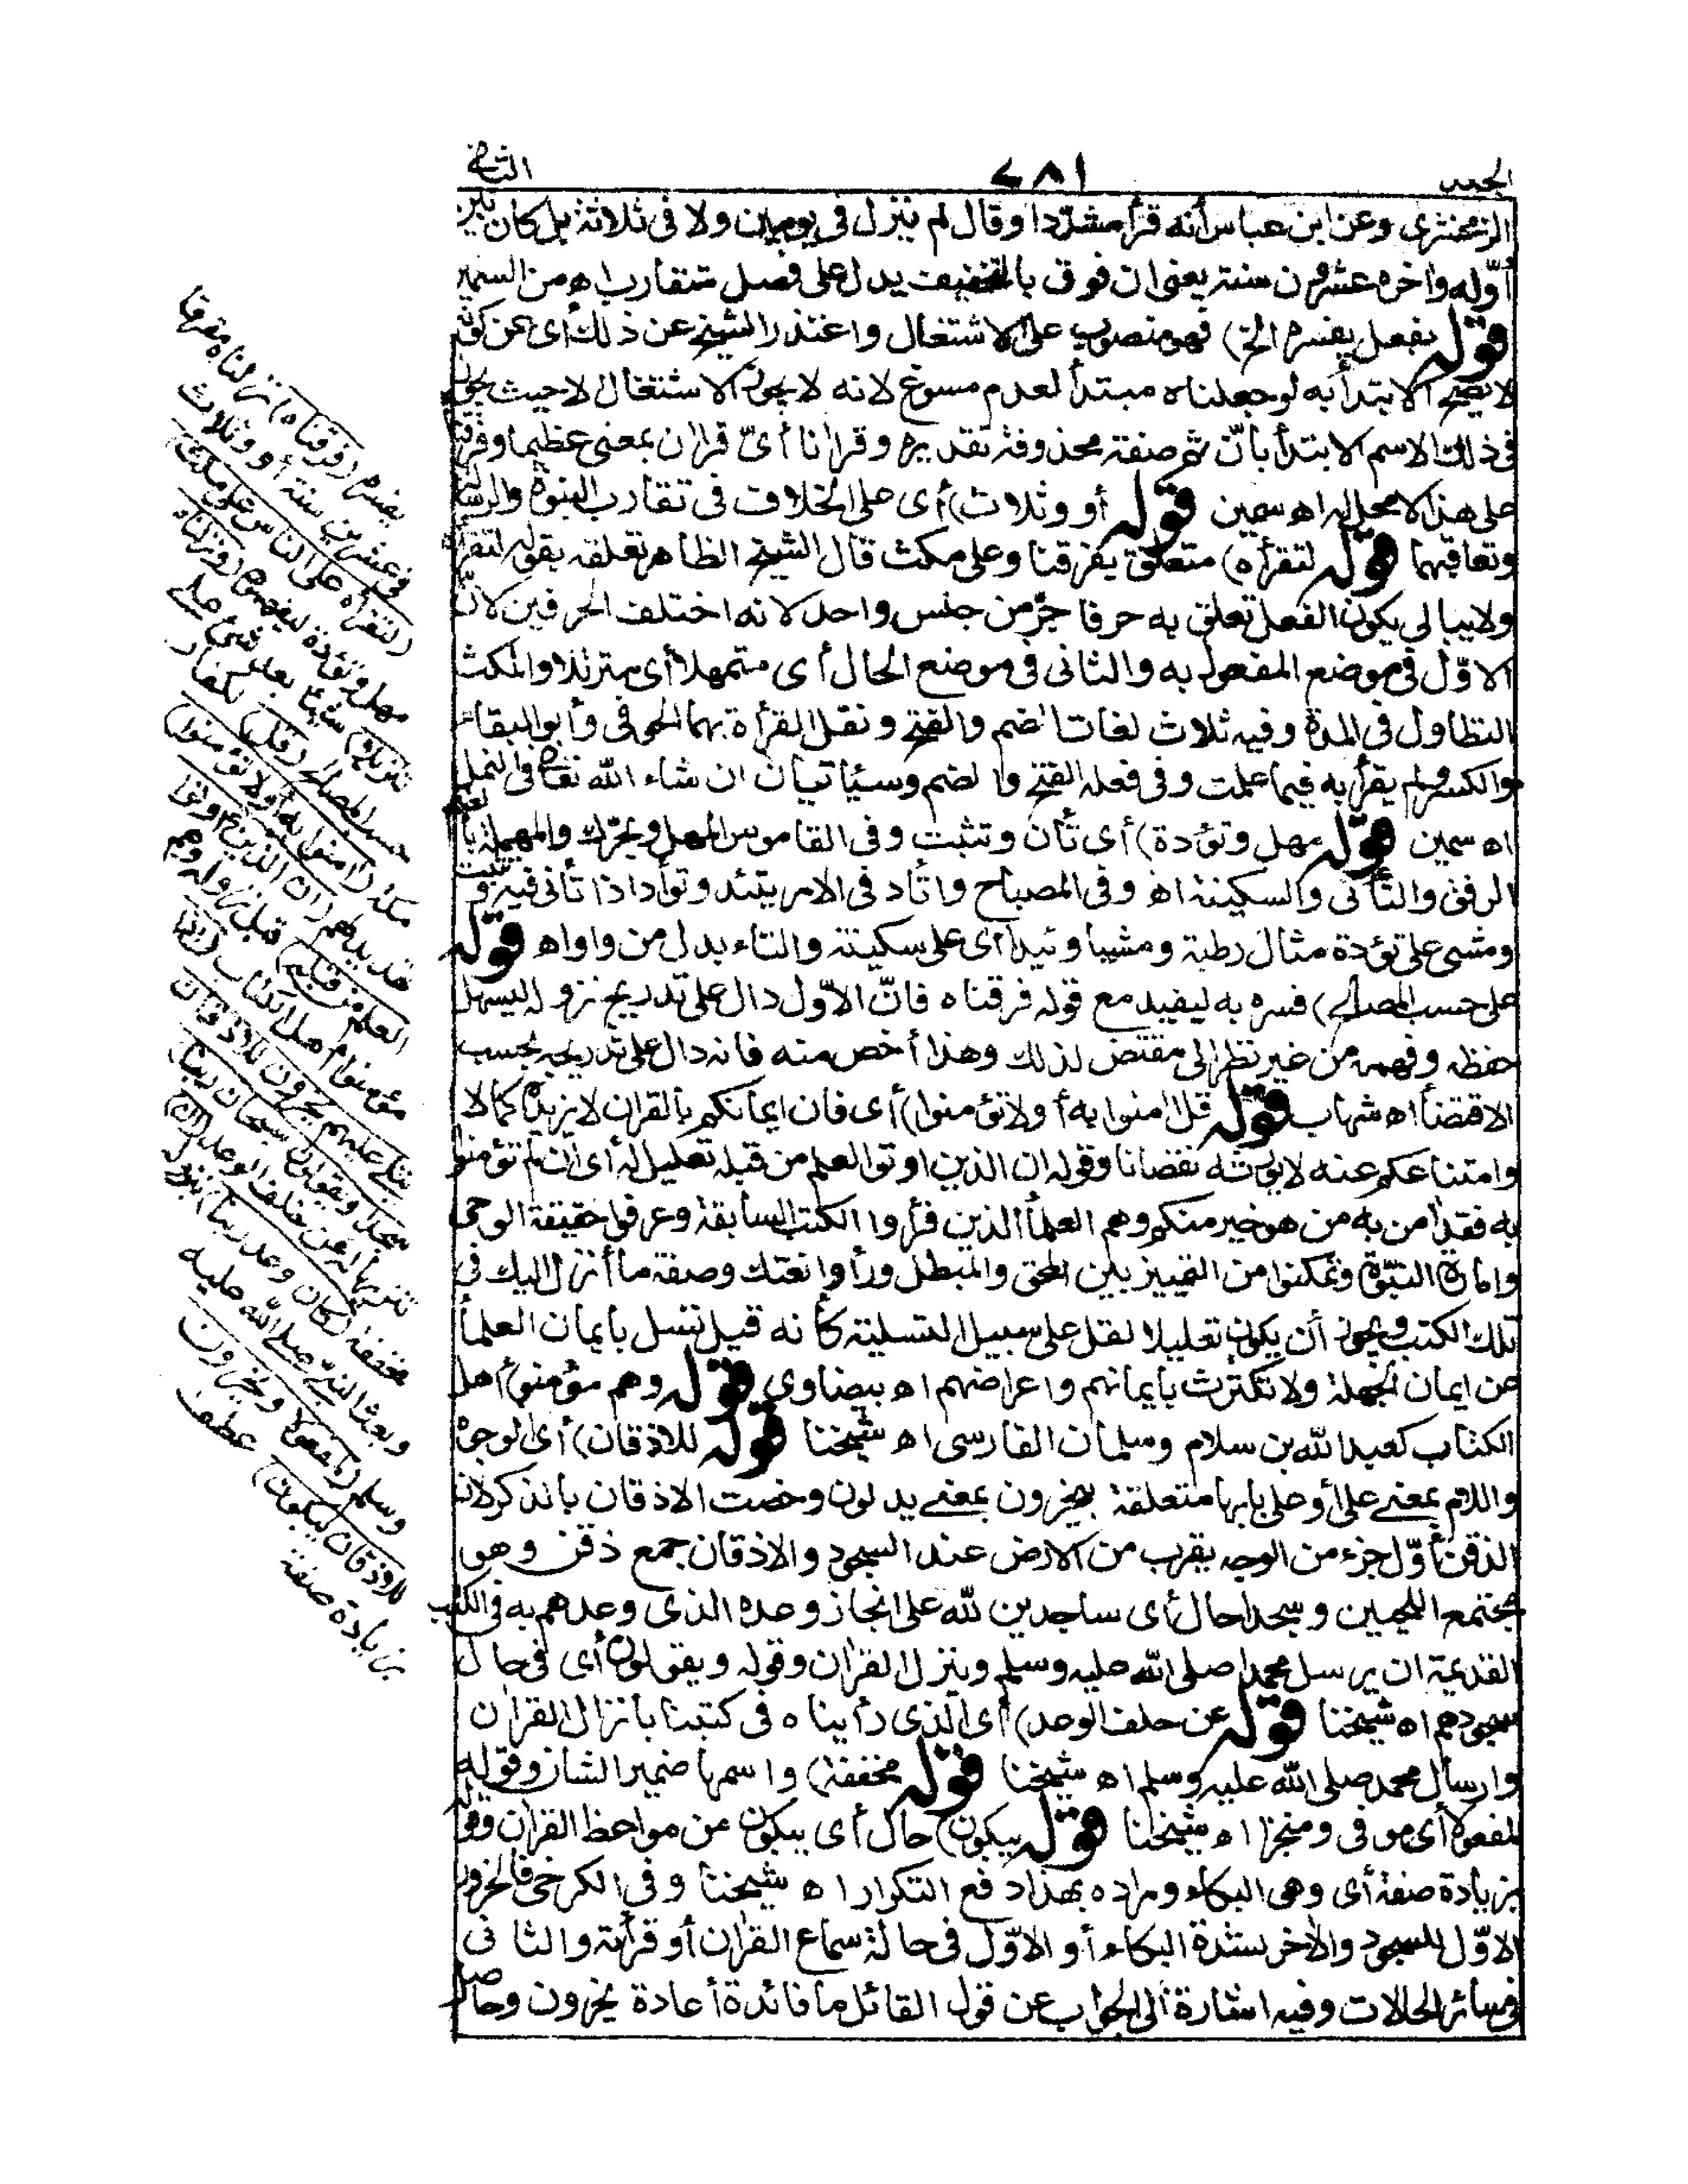 الجمل ٧٨١ الثانى
الزمخشرى وعن ابن عباس أنه قرأ مشدّدا وقال لم ينزل فى يومين ولا فى ثلاثة بل كان بين
أوّله واخره عشرون سنة يعنى ان فرق بالتخفيف يدل على فصل متقارب اه من السمين
قوله بفعل يفسره الخ) فهو منصوب على الاشتغال واعتذر الشيخ عن ذلك أى عن كونه
لا يصح الابتدأ به لو جعلناه مبتدأ لعدم مسوغ لانه لا يجوز الاشتغال لا حيث يجوز
فى ذلك الاسم الابتدأ بأنّ ثم صفة محذوفة تقديره وقرانا أىّ قران بمعنى عظيما وفرقناه
على هذا لا محل له اه سمين قوله أو وثلاث) أى على الخلاف فى تقارب النبوة والرسالة
وتعاقبهما قوله لتقرأه) متعلق بفرقنا وعلى مكث قال الشيخ الظاهر تعلقه بقوله لتقرأه
ولا يبالى بكون الفعل تعلق به حرفا جرّ من جنس واحد لانه اختلف الحرفين لانّ
الاوّل فى موضع المفعول به والثانى فى موضع الحال أى متمهلا أى مترتلا والمكث
التطاول فى المدة وفيه ثلاث لغات الضم والفتح ونقل القرأة بهما الحوفى وأبو البقاء
والكسر ولم يقرأ به فيما علمت وفى فعله الفتح والضم وسيأتيان ان شاء الله تعالى فى النمل
اه سمين قوله مهل وتؤدة) أى تأن وتثبت وفى القاموس المهل ويحرّك والمهملة بالضم
الرفق والتأنى والسكينة اه وفى المصباح واتّأد فى الامر يتئد وتوأد اذا تأنى فيه وتثبت
ومشى على تؤدة مثال رطبة ومشيا وئيدا أى على سكينة والتاء بدل من واو اه قوله
على حسب المصالح) فسره به ليفيد مع قوله فرقناه فانّ الاوّل دال على تدريج نزوله ليسهل
حفظه وفهمه من غير نظر الى مقتض لذلك وهذا أخص منه فانه دال على تدريجه بحسب
الاقتضأ اه شهاب قوله قل امنوا به أو لا تؤمنوا) أى فان ايمانكم بالقران لا يزيده كمالا
وامتناعكم عنه لا يورثه نقصانا وقوله ان الذين اوتوا العلم من قبله تعليل له أى ان لم تؤمنوا
به فقد امن به من هو خير منكم وهم العلمأ الذين قرأوا الكتب السابقة وعرفوا حقيقة الوحى
وامارة النبوّة وتمكنوا من التمييز بين المحق والمبطل ورأوا نعتك وصفة ما أنزل اليك فى
تلك الكتب ويجوز أن يكون تعليلا لقل على سبيل التسلية كأنه قيل تسل بأيمان العلمأ
عن ايمان الجهلة ولا تكترث بايمانهم واعراضهم اه بيضاوى قوله وهم مؤمنوا أهل
الكتاب كعبد الله بن سلام وسلمان الفارسى اه شيخنا قوله للاذقان) أى لوجوه
واللام بمعنى على أو على بابها متعلقة بيخرون بمعنى يدلون وخصت الاذقان بالذكر لان
الذقن أوّل جزء من الوجه يقرب من الارض عند السجود والاذقان جمع ذقن وهو
مجتمع اللحيين وسجدا حال أى ساجدين لله على انجاز وعده الذى وعدهم به فى الكتب
القديمة ان يرسل محمدا صلى الله عليه وسلم وينزل القران وقوله ويقولون أى فى حال
سجودهم اه شيخنا قوله عن خلف الوعد) أى الذى رأيناه فى كتبنا بانزال القران
وارسال محمد صلى الله عليه وسلم اه شيخنا قوله مخففة) واسمها ضمير الشان وقوله
لمفعولا أى موفى ومنجزا اه شيخنا قوله يبكون) حال أى يبكون من مواعظ القران وقوله
بزيادة صفة أى وهى البكاء ومراده بهذا دفع التكرار اه شيخنا وفى الكرخى فالخرور
الاوّل للسجود والاخر لشدة البكاء أو الاوّل فى حالة سماع القران أو قرأته والثانى
فى سائر الحالات وفيه اشارة الى الجواب عن قول القائل ما فائدة أعادة يخرون وحاصله
يفسره (فرقناه) نزلناه مفرقا
فى عشرين سنة أو وثلاث
(لتقرأه على الناس على مكث)
مهل وتؤدة ليفهموه (ونزلناه
تنزيلا) شيئا بعد شئ على
حسب المصالح (قل) لكفار
مكة (امنوا به أو لا تؤمنوا)
تهديد لهم (ان الذين اوتوا
العلم من قبله) قبل نزوله وهم
مؤمنوا أهل الكتاب (اذا
يتلى عليهم يخرون للاذقان
سجدا ويقولون سبحان ربنا)
تنزيها له عن خلف الوعد (ان)
مخففة (كان وعد ربنا) بنزوله
وبعث النبى صلى الله عليه
وسلم (لمفعولا ويخرون
للاذقان يبكون) عطف
بزيادة صفة